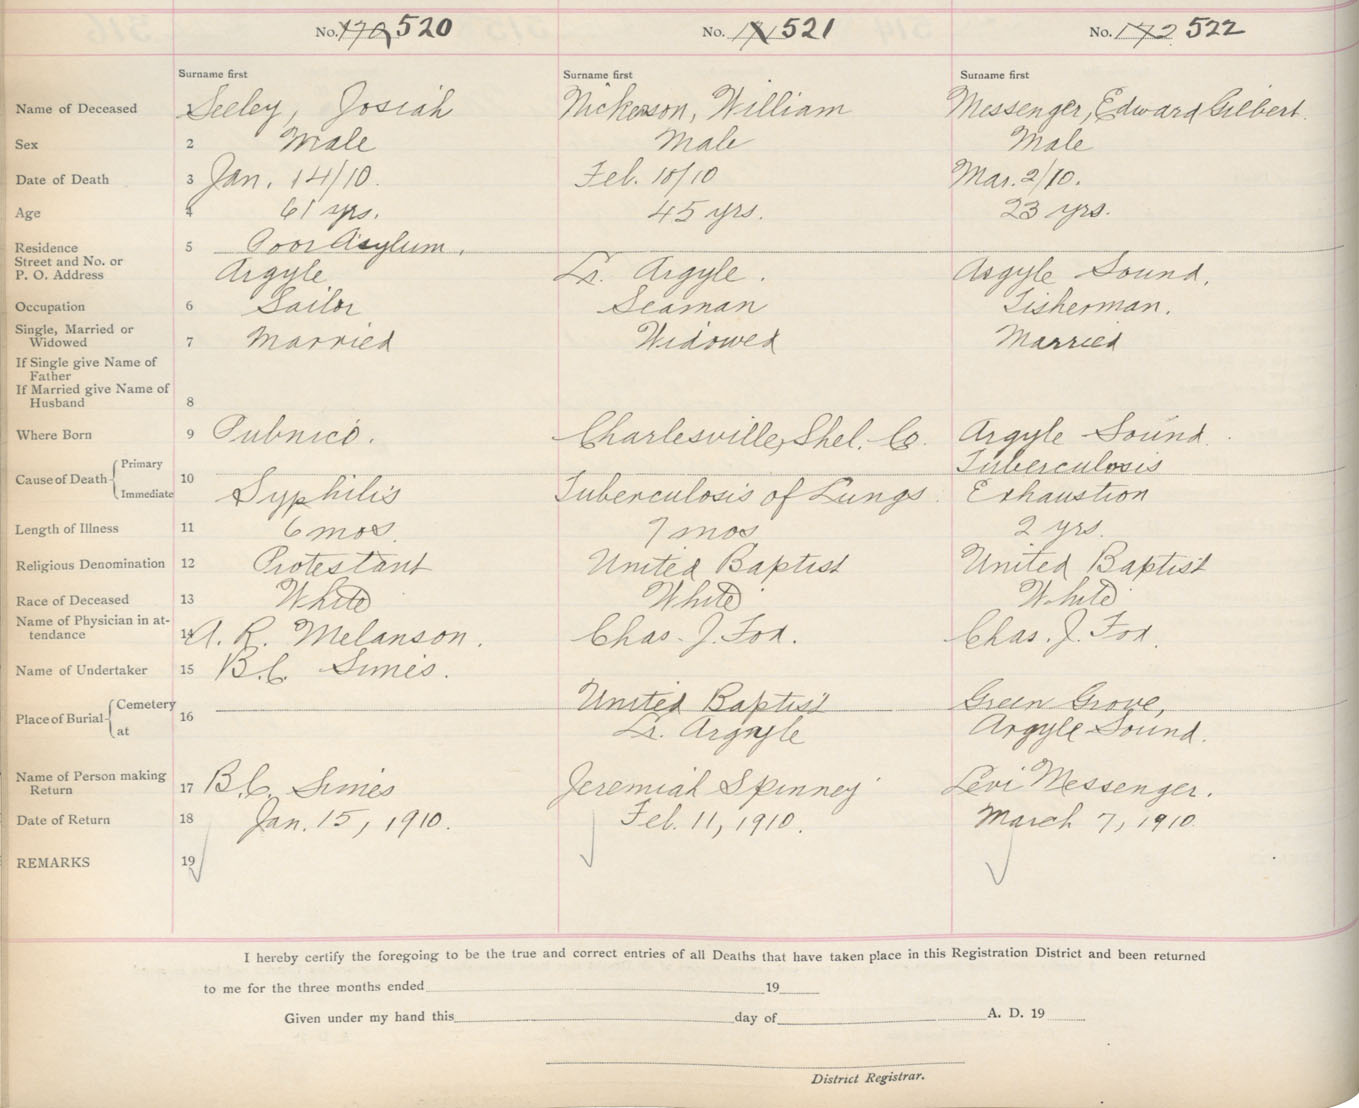 No. 170 520 No. 171 521 No. 172 522
Surname first Surname first Surname first
Name of Deceased 1 Seeley, Josiah Nickerson, William Messenger, Edward Gilbert.
Sex 2 Male Male Male
Date of Death 3 Jan. 14/10. Feb. 10/10 Mar. 2/10.
Age 4 61 yrs. 45 yrs. 23 yrs.
Residence 5 Poor Asylum,
Street and No. or
P. O. Address Argyle Lr. Argyle. Argyle Sound.
Occupation 6 Sailor Seaman Fisherman.
Single, Married or
Widowed 7 Married Widowed Married
If Single give Name of
Father
If Married give Name of
Husband 8
Where Born 9 Pubnico. Charlesville, Shel. Co. Argyle Sound.
Cause of Death Primary 10 Tuberculosis
Immediate Syphilis Tuberculosis of Lungs. Exhaustion
Length of Illness 11 6 mos. 7 mos 2 yrs.
Religious Denomination 12 Protestant United Baptist United Baptist
Race of Deceased 13 White White White
Name of Physician in at-
tendance 14 A. R. Melanson. Chas. J. Fox. Chas. J. Fox.
Name of Undertaker 15 B.C. Simes.
Place of Burial Cemetery 16 United Baptist Green Grove,
at Lr. Argyle Argyle Sound.
Name of Person making
Return 17 B.C. Simes Jeremiah Spinney Levi Messenger.
Date of Return 18 Jan. 15, 1910. Feb. 11, 1910. March 7, 1910.
REMARKS 19
I hereby certify the foregoing to be the true and correct entries of all Deaths that have taken place in this Registration District and been returned
to me for the three months ended 19
Given under my hand this day of A. D. 19
District Registrar.